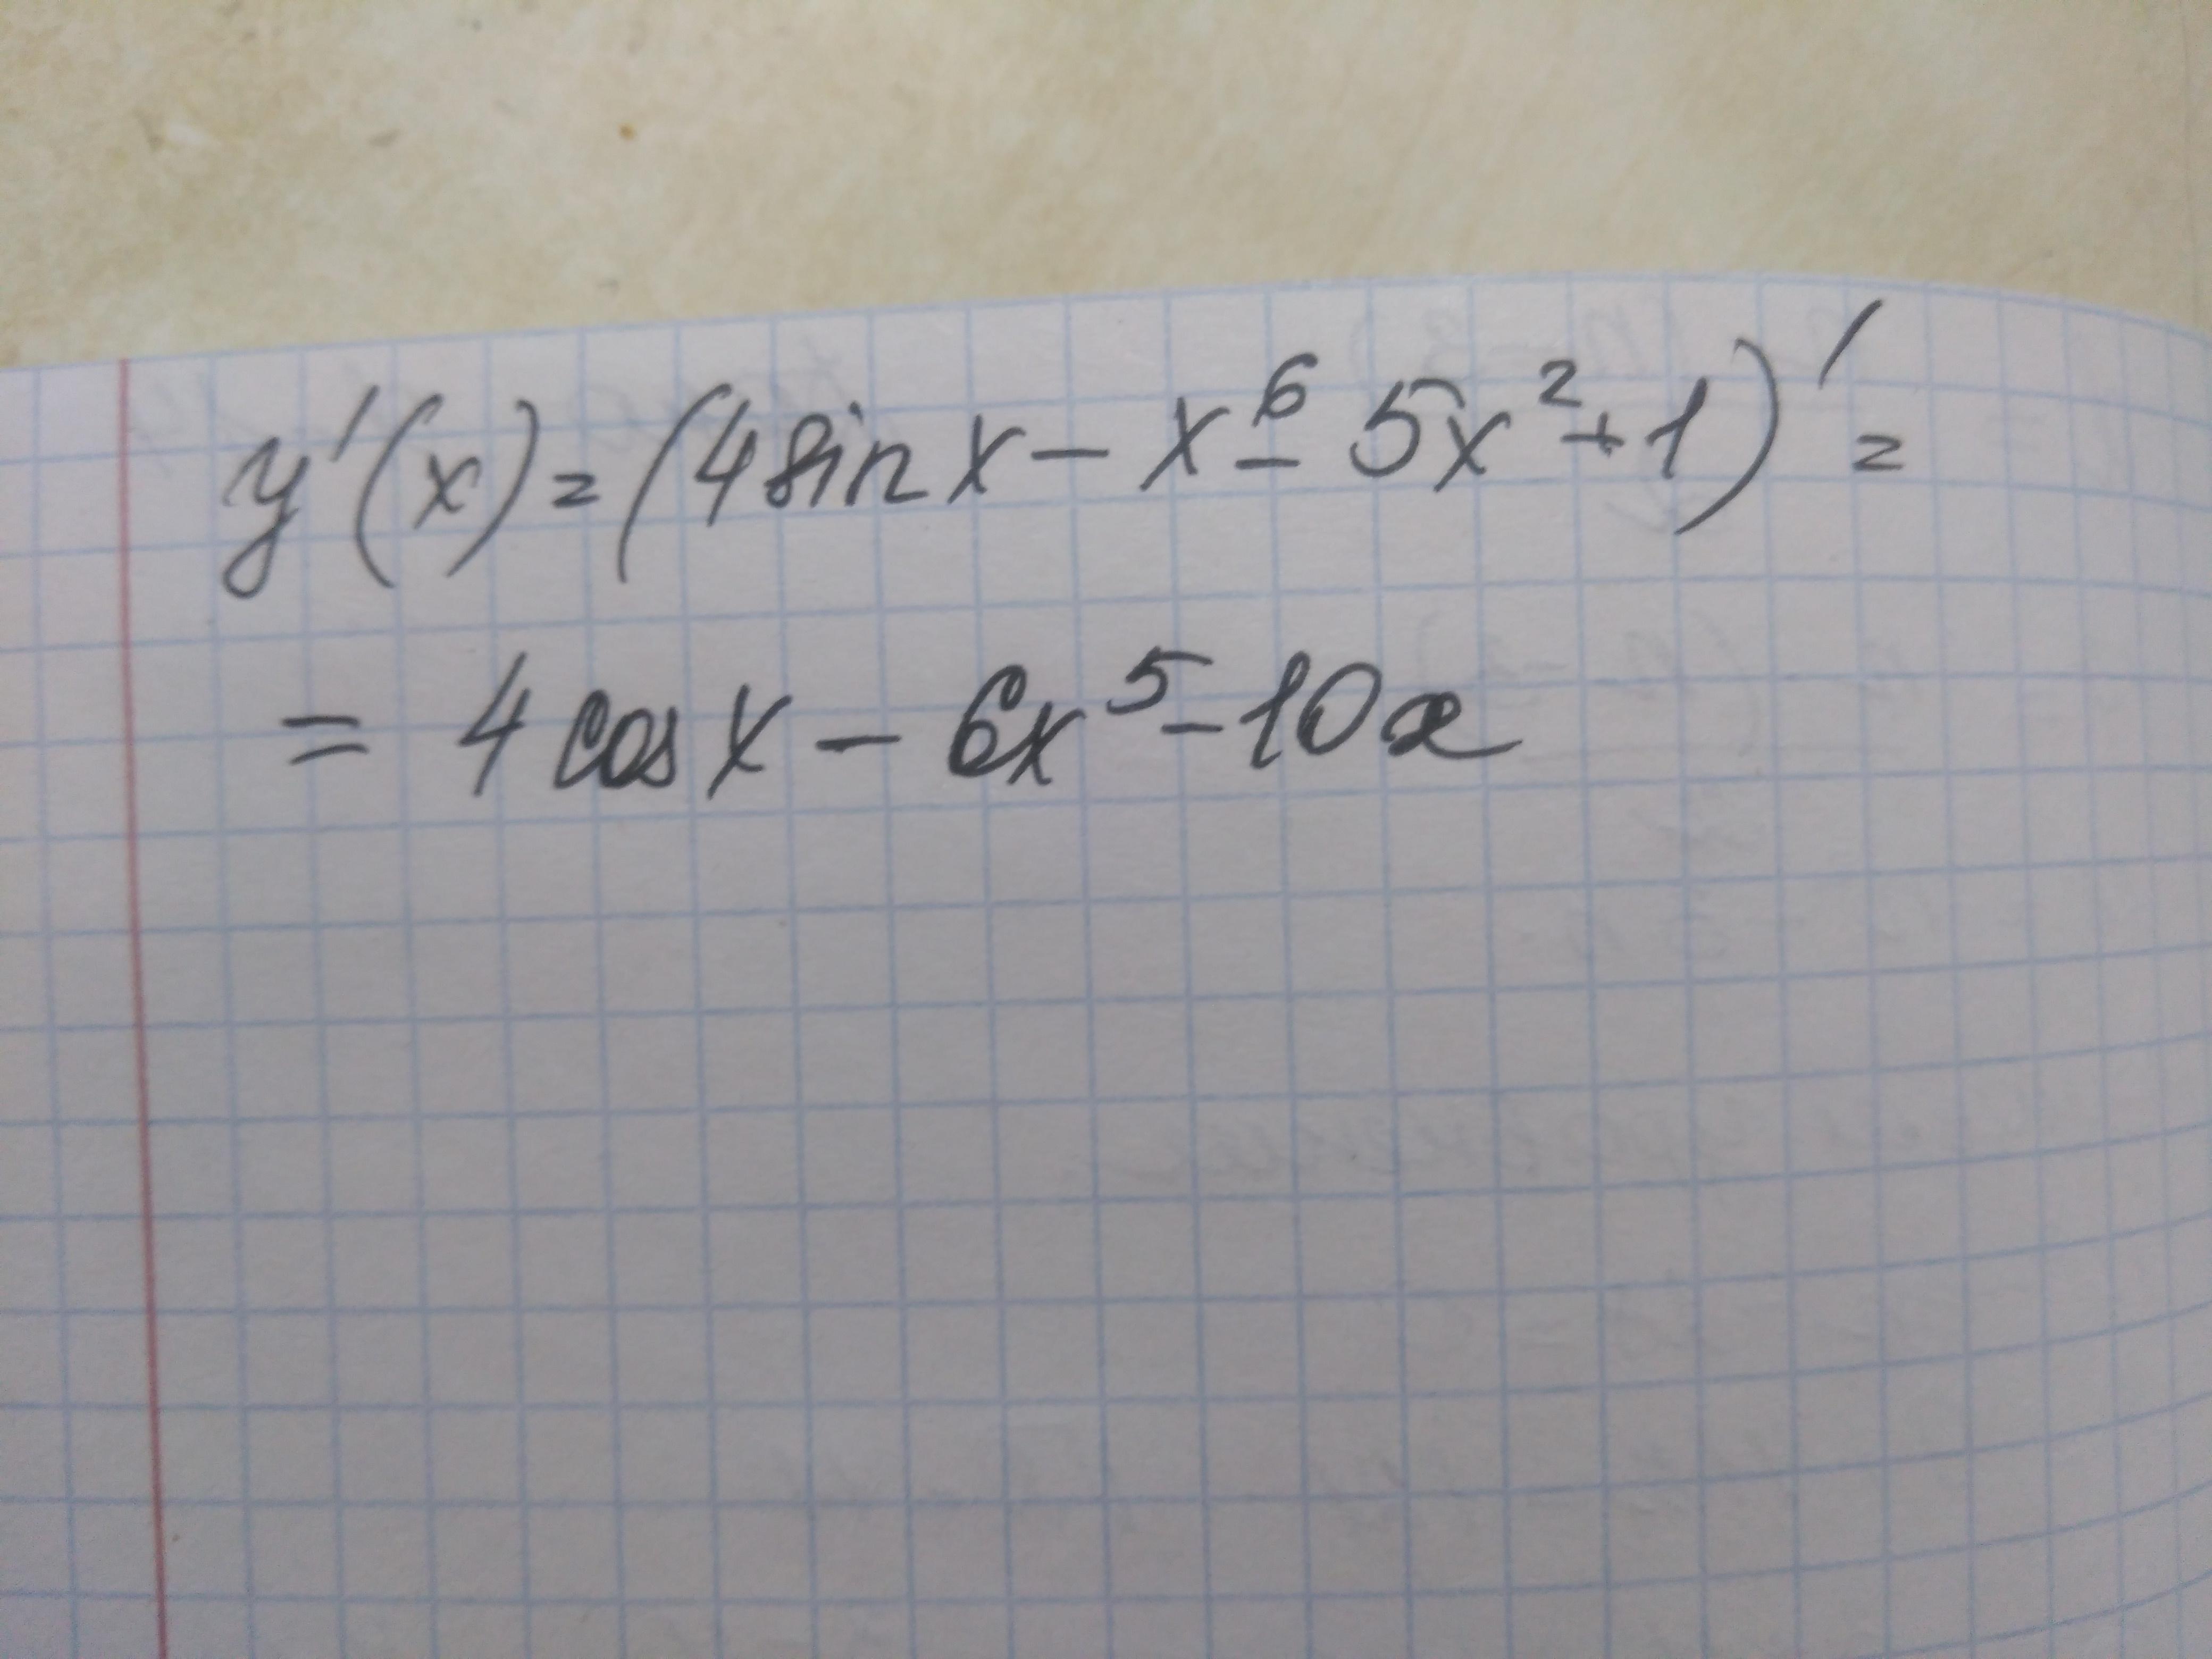 y'(x)=(4sinx-x⁶-5x²+1)'=
=4cosx-6x⁵-10x